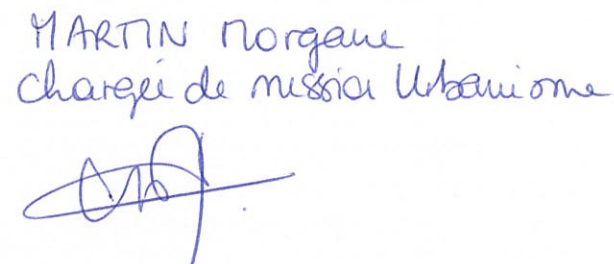 MARTIN Morgane
chargée de mission Urbanisme